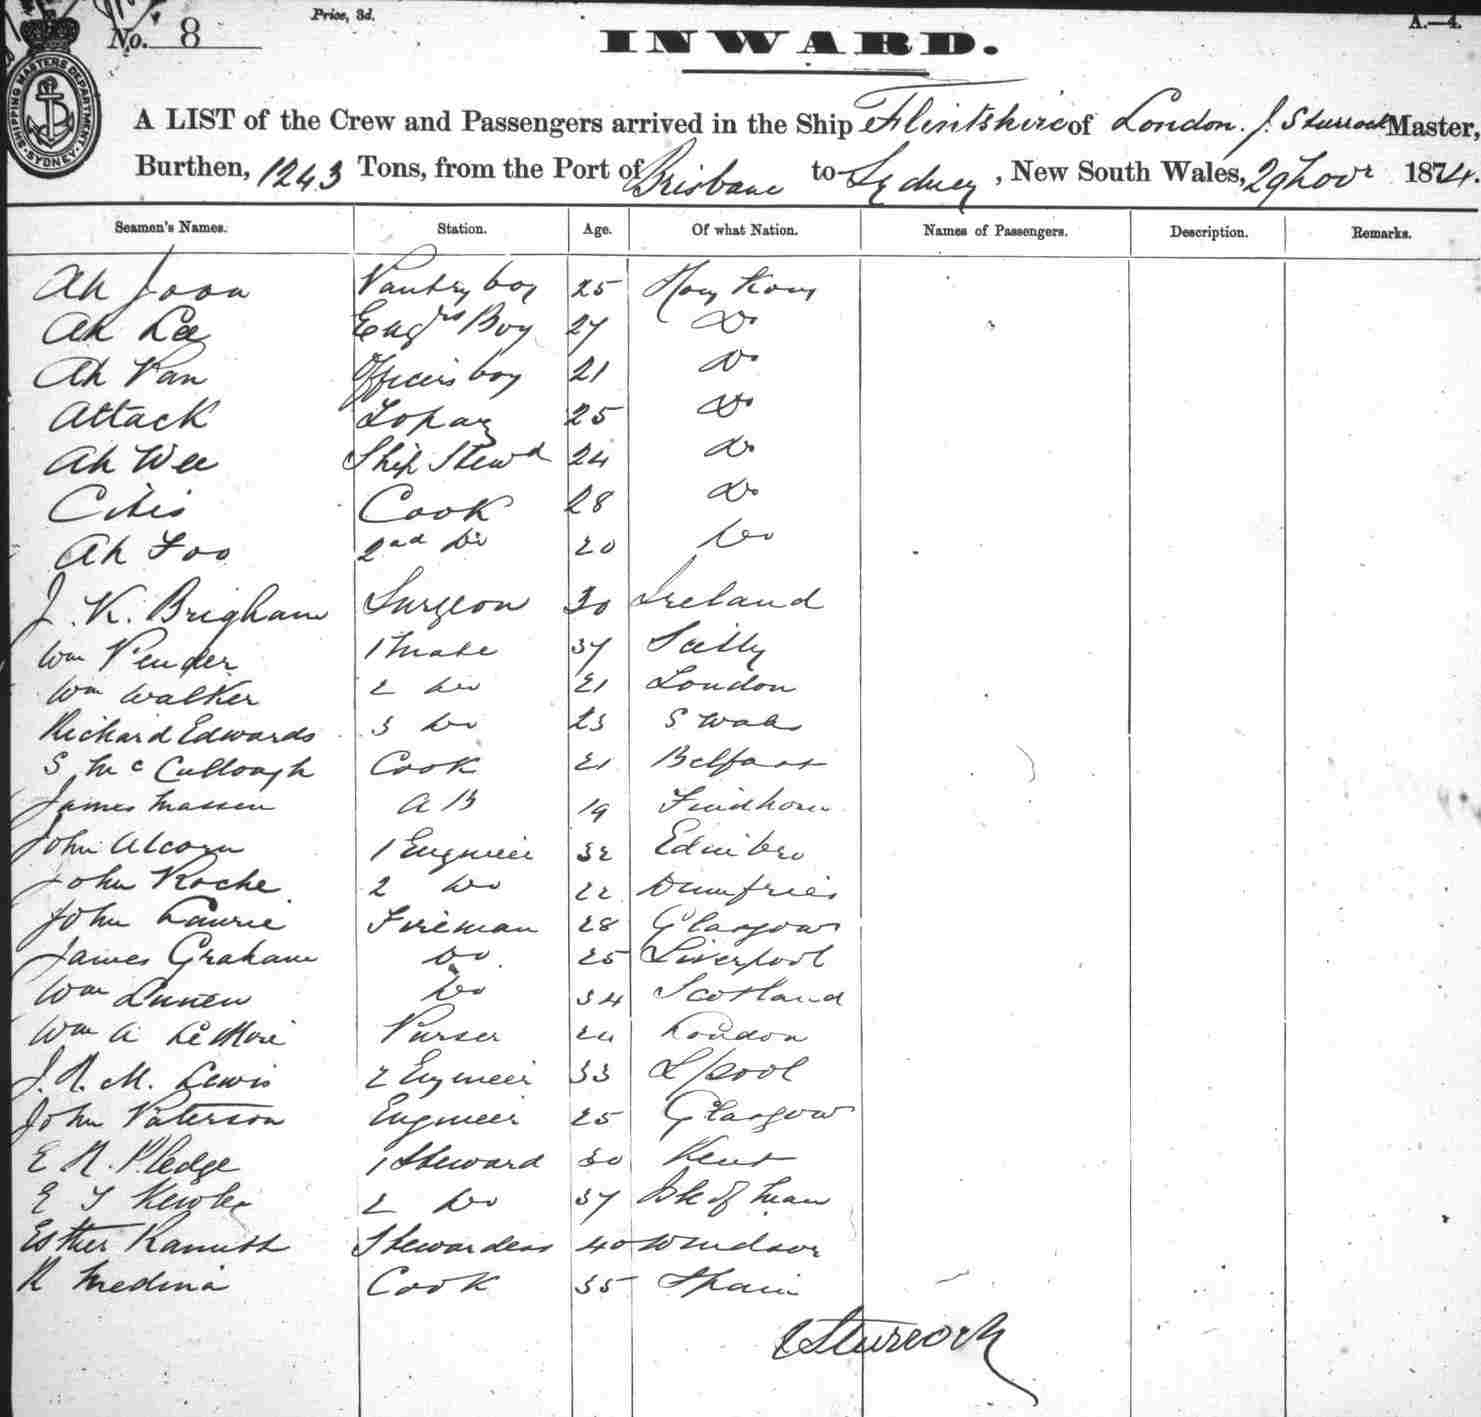 Price, 3d.
A.—4.
No. 8
INWARD.
SHIPPING MASTERS DEPARTMENT SYDNEY
A LIST of the Crew and Passengers arrived in the Ship Flintshire of London. J. Sturrock Master,
Burthen, 1243 Tons, from the Port of Brisbane to Sydney, New South Wales, 29 Novr 1874.
Seamen's Names. Station. Age. Of what Nation. Names of Passengers. Description. Remarks.
Ah Pantry boy 25 Hong Kong
Ah Lee Engrs Boy 27 Do
Ah Pan Officers boy 21 Do
Attack 25 Do
Ah Wee Ship Stewd 24 Do
Cook 28 Do
Ah Foo 2nd Do 20 Do
J. K. Brigham Surgeon 30 Ireland
Wm Pender 1 Mate 37 Scilly
Wm Walker 2 Do 21 London
Richard Edwards 3 Do 23 S Wales
S McCullough Cook 21 Belfast
James A B 19 Findhorn
John Alcorn 1 Engineer 32 Edinbro
John Roche 2 Do 22 Dumfries
John Laurie Fireman 28 Glasgow
James Graham Do 25 Liverpool
Wm Do 34 Scotland
Wm A Purser 24 London
J. R. M. Lewis 2 Engineer 33 Lpool
John Paterson Engineer 25 Glasgow
E R. Pledge 1 Steward 30 Kent
E 2 Do 37 Isle of Man
Esther Stewardess 40 Windsor
R Medina Cook 35 Spain
J Sturrock